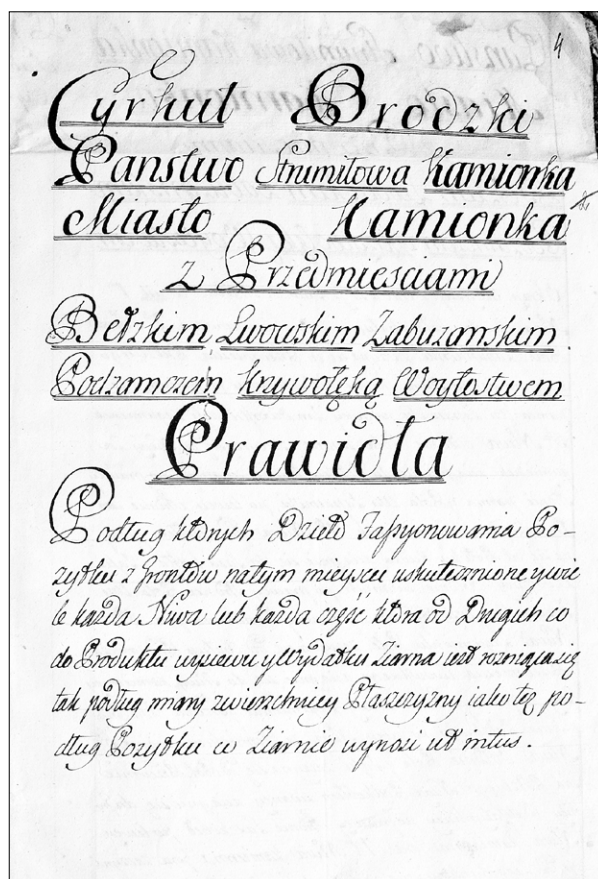 4
Cyrkuł Brodzki
Panstwo Strumiłowa Kamionka
Miasto Kamionka
z Przedmiesciami
Bełzkim Lwowskim Zabuzanskim
Podzamczem Krzywołęką Woytostwem
Prawidła
Podług których Dzieło Fassyonowania Po-
zytku z Grontów natym mieyscu uskutecznione y wie
le kazda Niwa lub kazda część która od Drugich co
do Produktu wysiewu y Wydatku Ziarna iest rozniąca się
tak podług miary zwierzchniey Płaszczyzny iako też po-
dług Pozytku w Ziarnie wynosi ut intus.